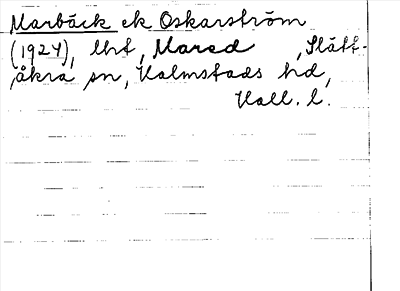 Marbäck ek Oskarström
(1924), lht, Mared , Slätt-
åkra sn, Halmstads hd,
Hall. l.